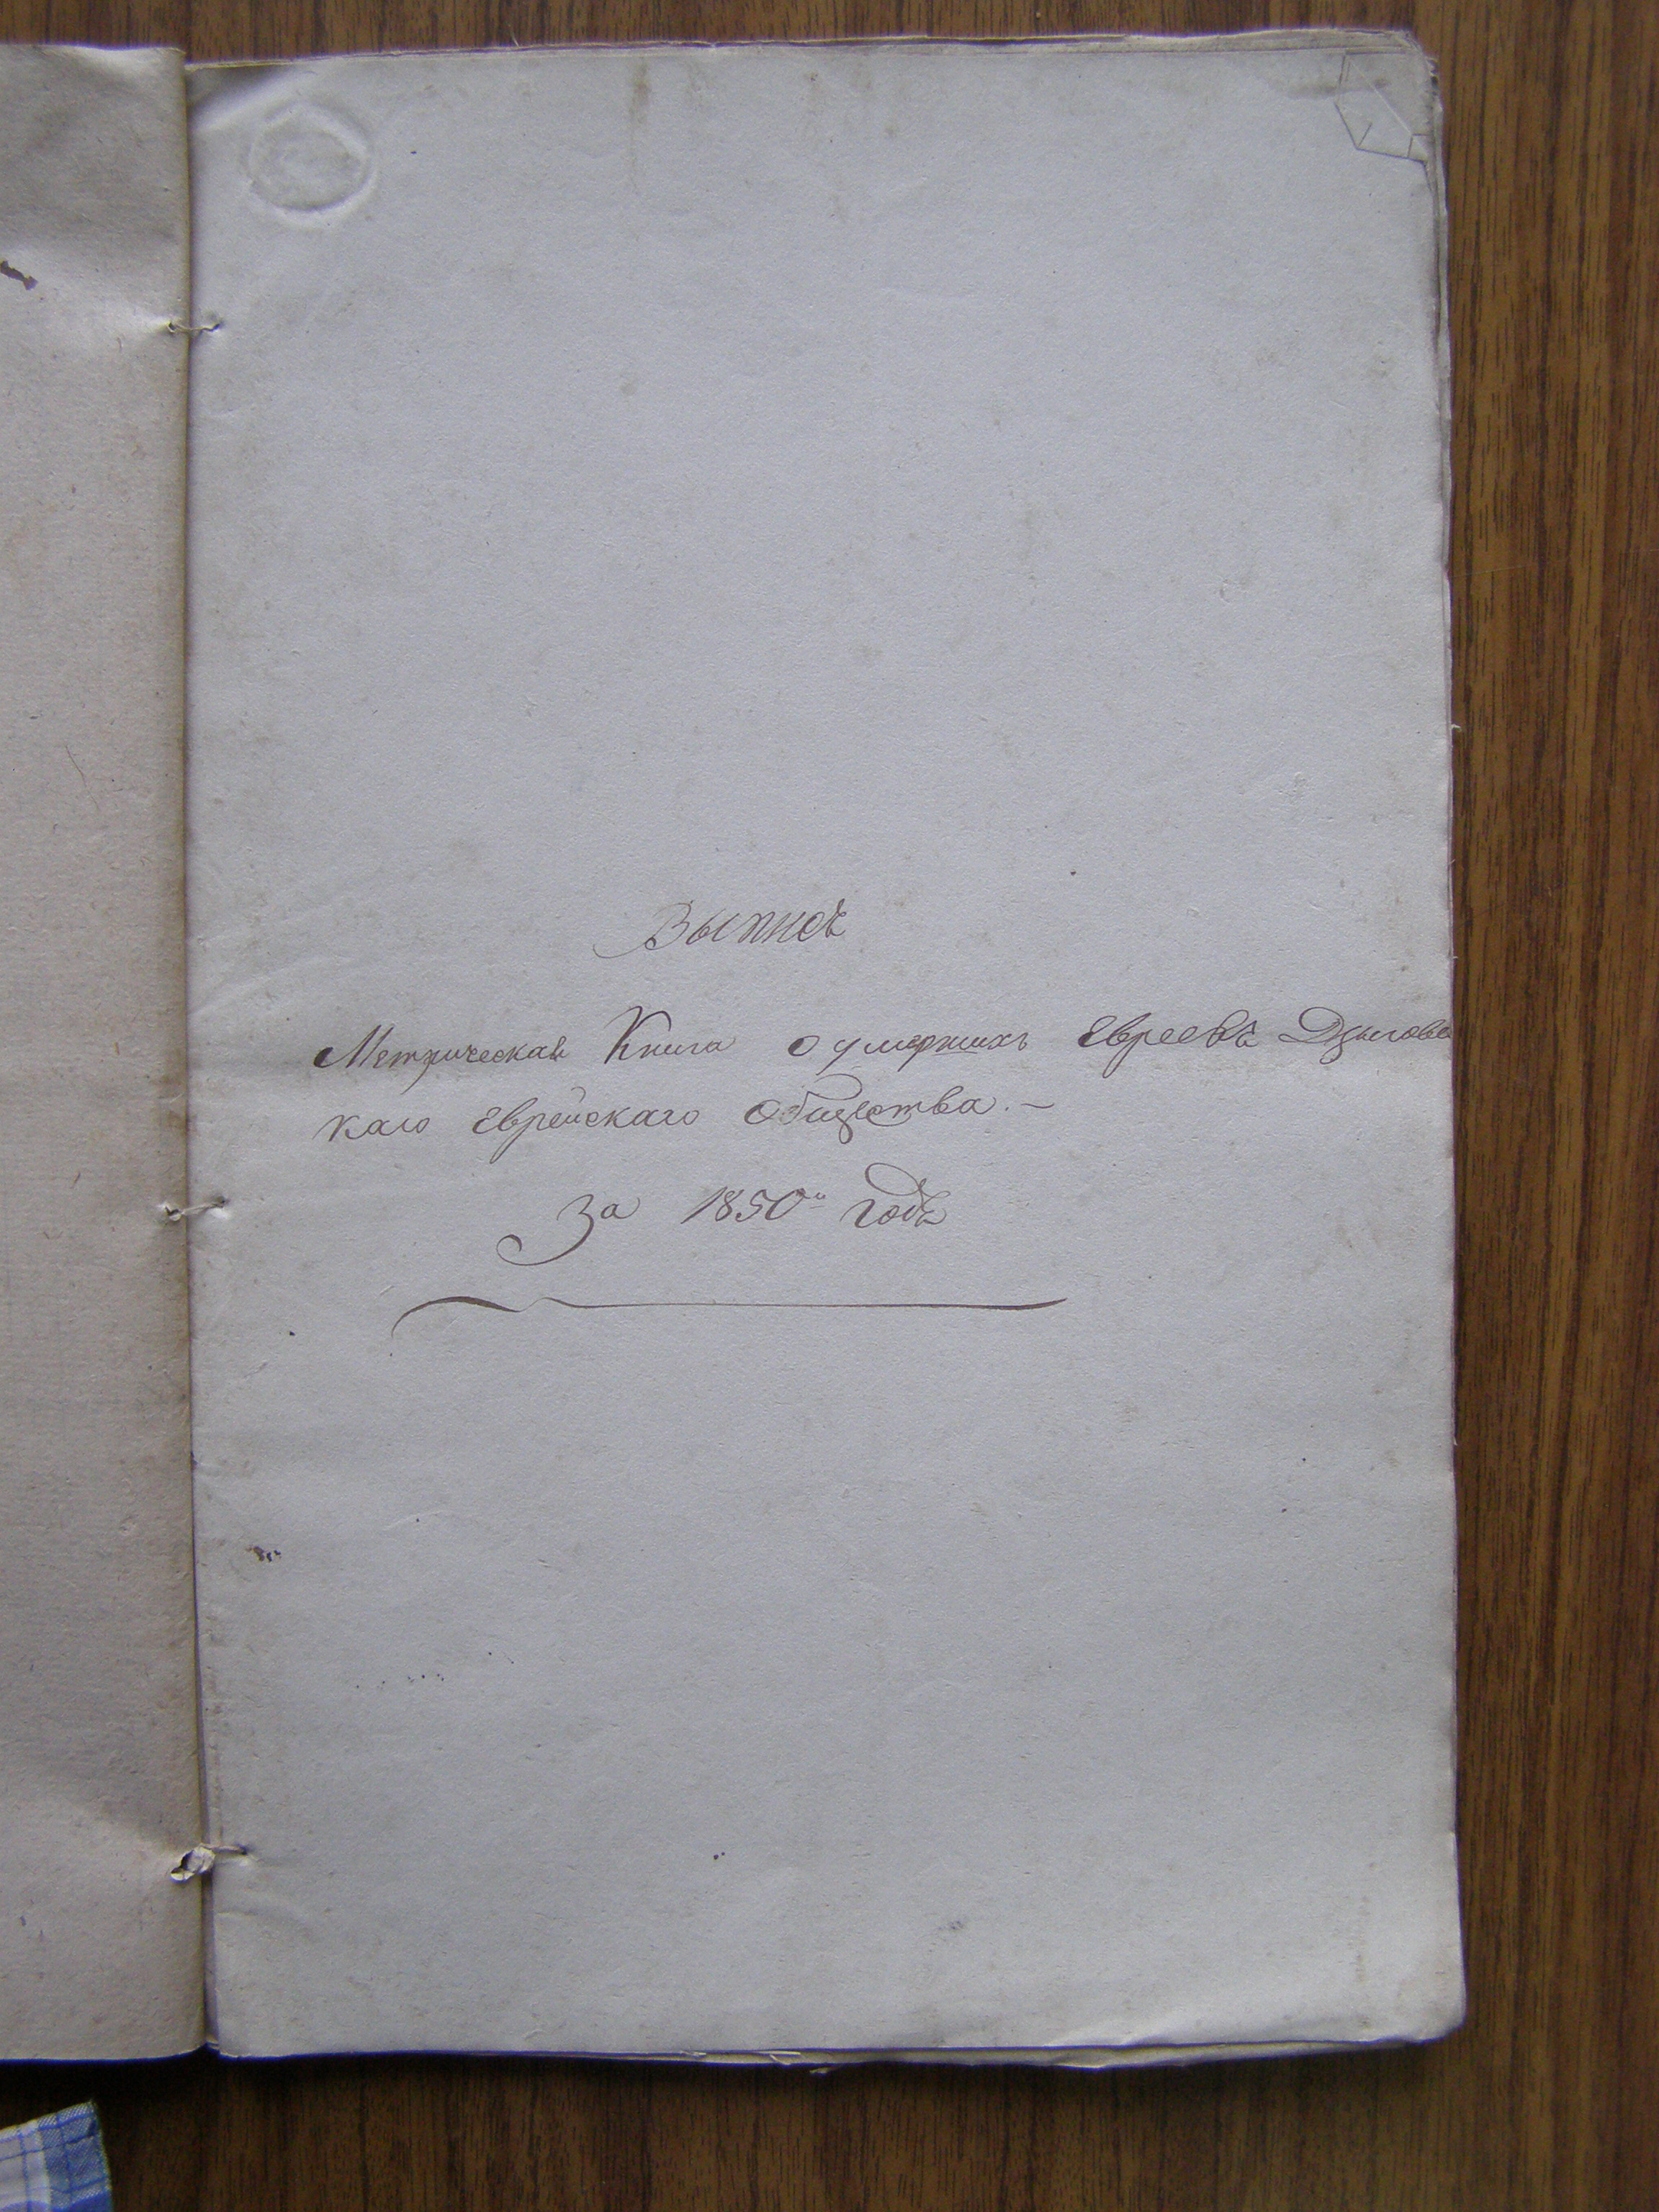 Выписъ
Метрическая Книга о умершихъ Евреевъ Дзыговс
каго Еврейскаго Общества. —
За 1850й Годъ